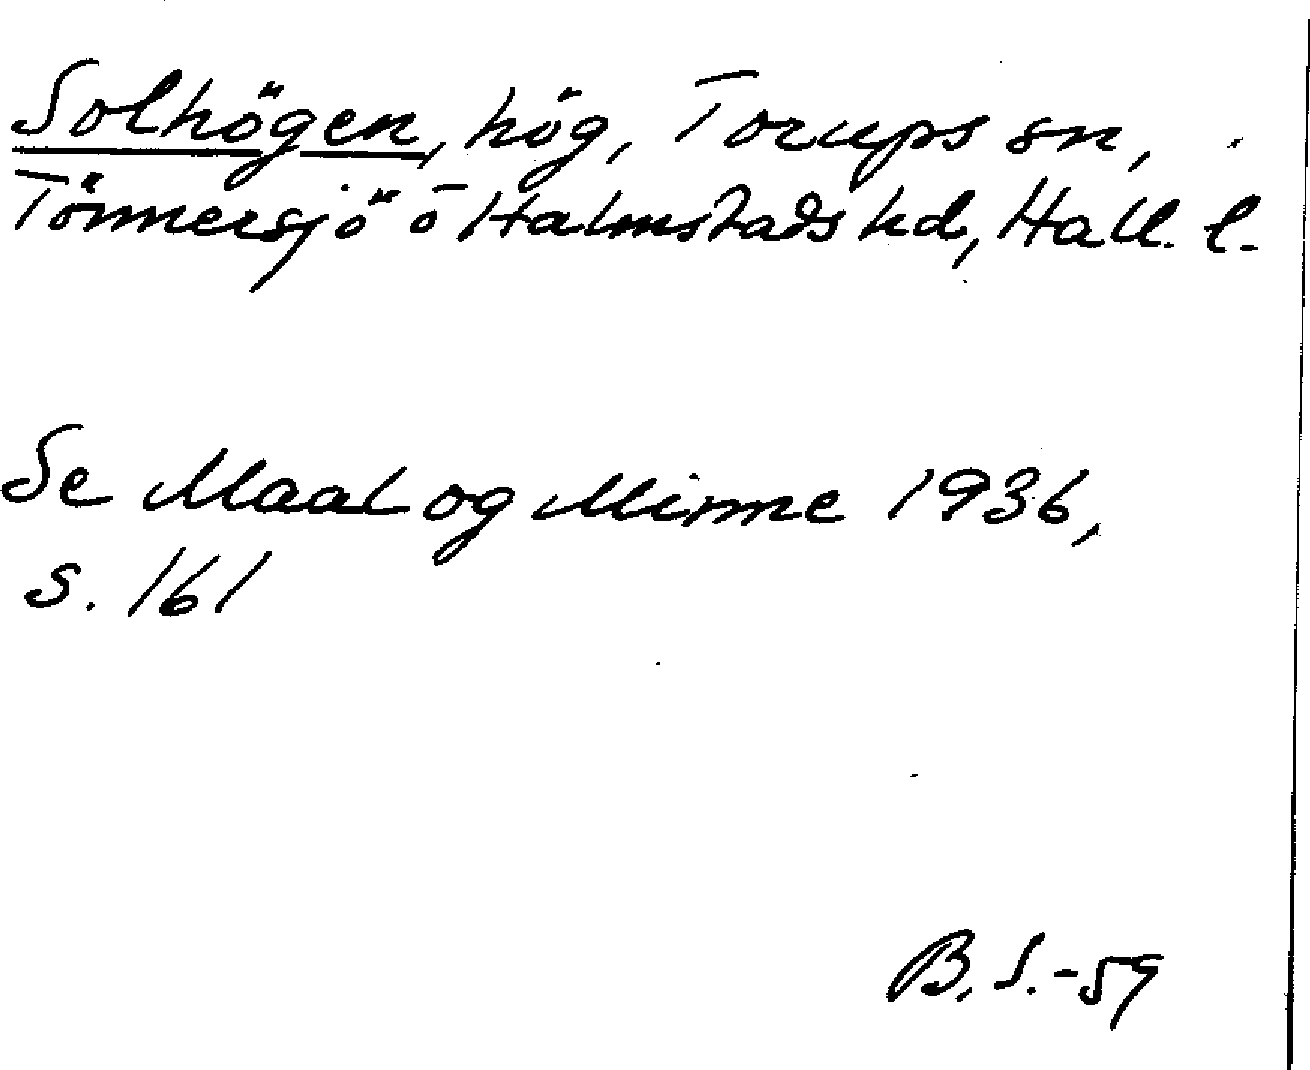 Solhögen, hög, Torups sn,
Tönnersjö o Halmstads hd, Hall. l.
Se Maal og Minne 1936,
s. 161
B. S.-59